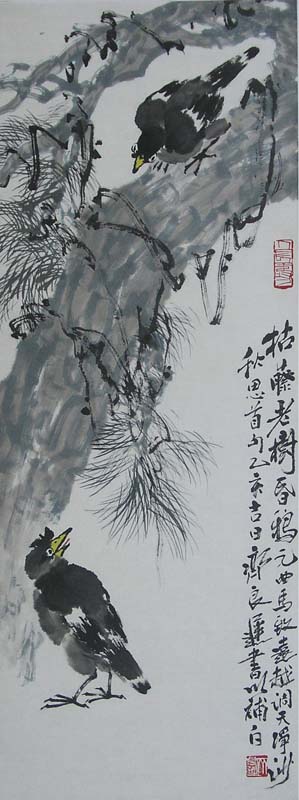 枯藤老樹昏鴉元曲馬致遠越調天淨沙
秋思首句乙亥吉日齊良遲書以補白